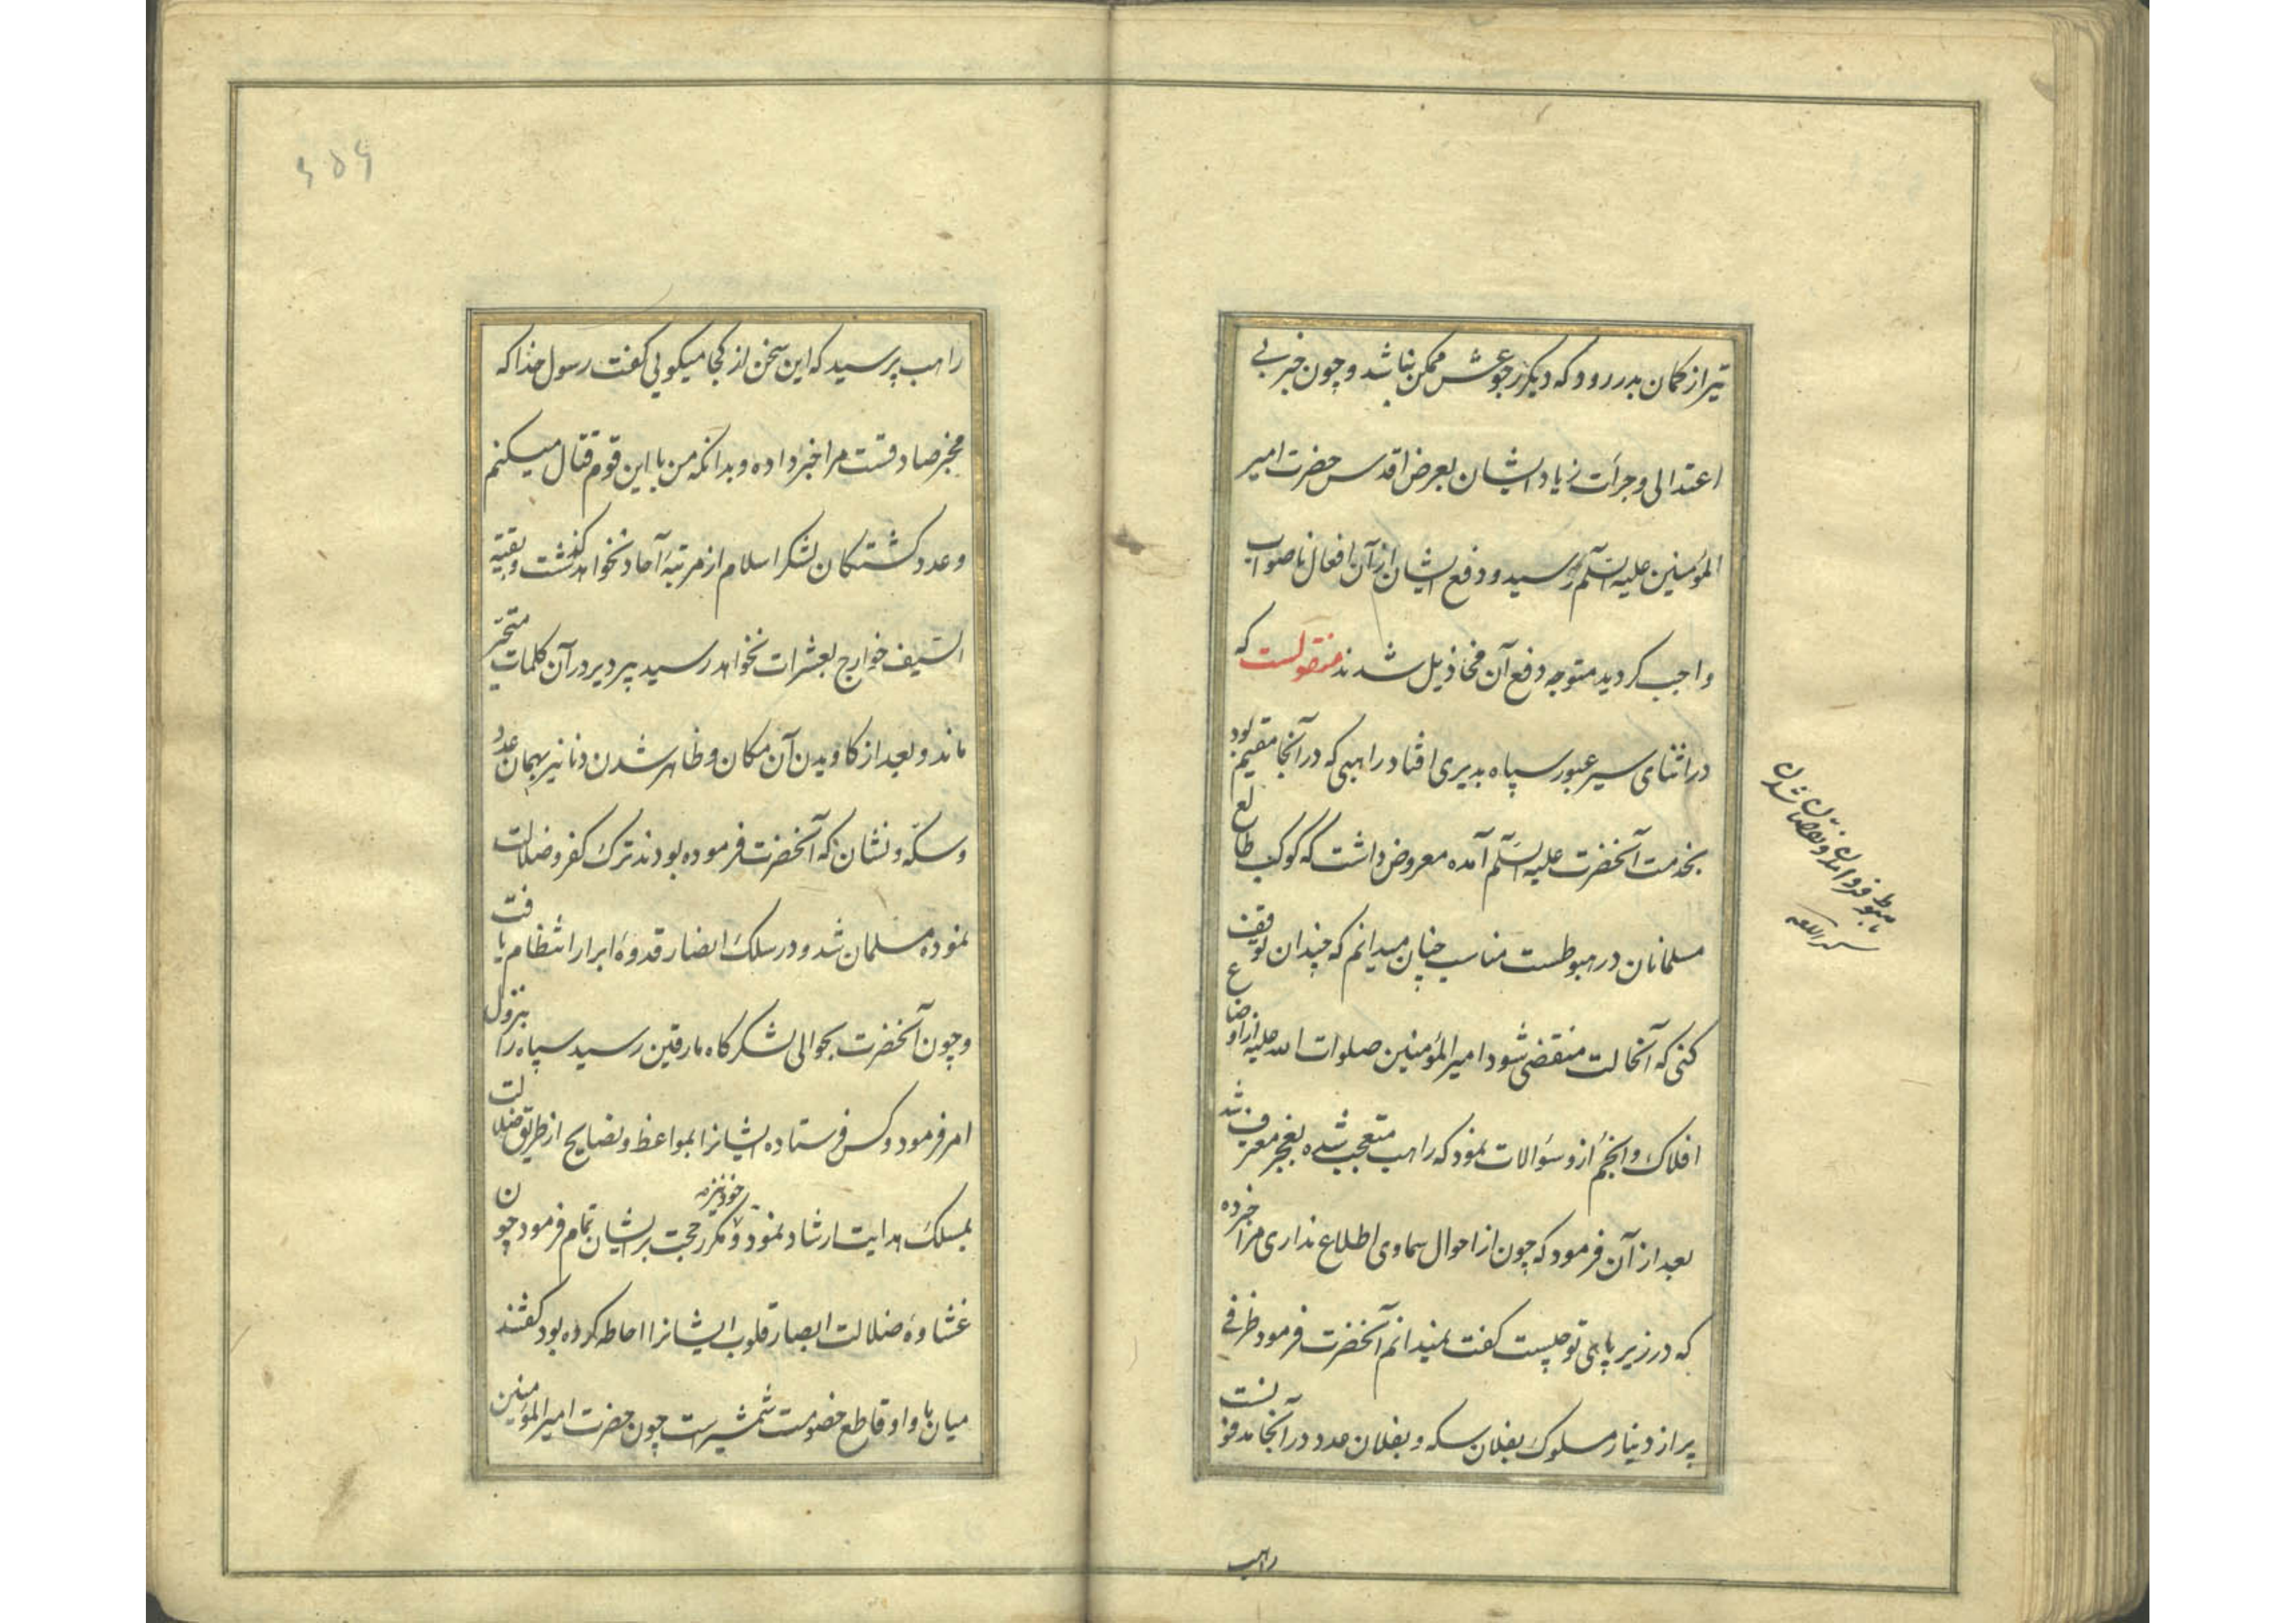 تیر از کمان بدر رود که دیگر رجوعش ممکن نباشد و چون خبر بی
اعتدالی و جرأت زیاد ایشان بعرض اقدس حضرت امیر
المؤمنین علیه السلم رسید و دفع ایشان از آن افعال ناصواب
واجب گردید متوجه دفع آن مخاذیل شدند منقولست که
در اثنای سیر عبور سپاه بدیری افتاد راهبی که در آنجا مقیم بود
بخدمت آنحضرت علیه السلم آمده معروض داشت که کوکب طالع
مسلمانان در هبوطست مناسب چنان میدانم که چندان توقف
کنی که آنحالت منقضی شود امیر المؤمنین صلوات الله علیه از اوضاع
افلاک و انجم ازو سؤالات نمود که راهب متعجب شده بعجز معترف شد
بعد از آن فرمود که چون از احوال سماوی اطلاع نداری مرا خبر ده
که در زیر پاهی تو چیست گفت نمیدانم آنحضرت فرمود ظرفی
پر از دینار مسکوک بفلان سکه و بفلان عدد در آنجا مدفونست
راهب
هبوط فرود آمدن و نقصان شدن
راهب پرسید که این سخن از کجا میگویی گفت رسول خدا که
مخبر صادقست مرا خبر داده و بدانکه من با این قوم قتال میکنم
و عدد کشتگان لشکر اسلام از مرتبهٔ آحاد نخواهد گذشت و بقیة
السیف خوارج بعشرات نخواهد رسید پیر دیر در آن کلمات متحیر
ماند و بعد از کاویدن آن مکان و ظاهر شدن دنانیر بهمان عدد
و سکه و نشان که آنحضرت فرموده بودند ترک کفر و ضلالت
نموده مسلمان شد و در سلک انصار قدوهٔ ابرار انتظام یافت
و چون آنحضرت بحوالی لشکرگاه مارقین رسید سپاه را بنزول
امر فرمود و کس فرستاده ایشانرا بمواعظ و نصایح از طریق ضلالت
بمسلک هدایت ارشاد نمود و خود نیز مکرر حجت بر ایشان تمام فرمود چون
غشاوهٔ ضلالت ابصار قلوب ایشانرا احاطه کرده بود گفتند
میان ما و او قاطع خصومت شمشیرست چون حضرت امیر المؤمنین